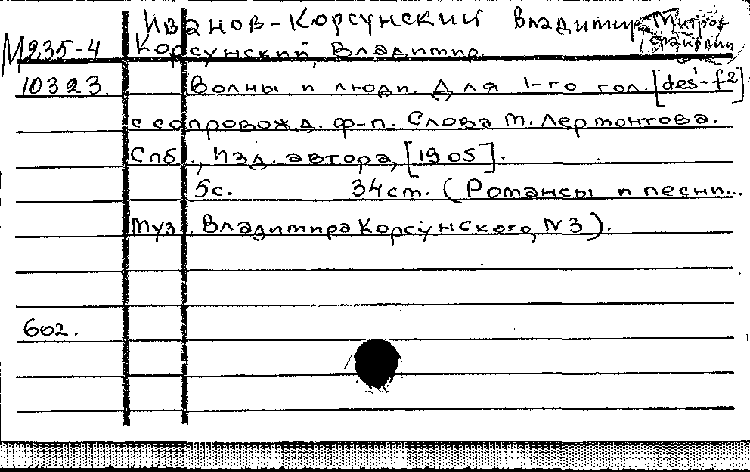 Иванов-Корсунский Владимир
М235-4 Корсунский, Владимир.
10323 Волны и люди. Для 1-го гол. [des¹-f²]
с сопровожд. ф-п. Слова М. Лермонтова.
Спб., Изд. автора, [1905].
5с. 34см. (Романсы и песни...
Муз. Владимира Корсунского, N3).
602.